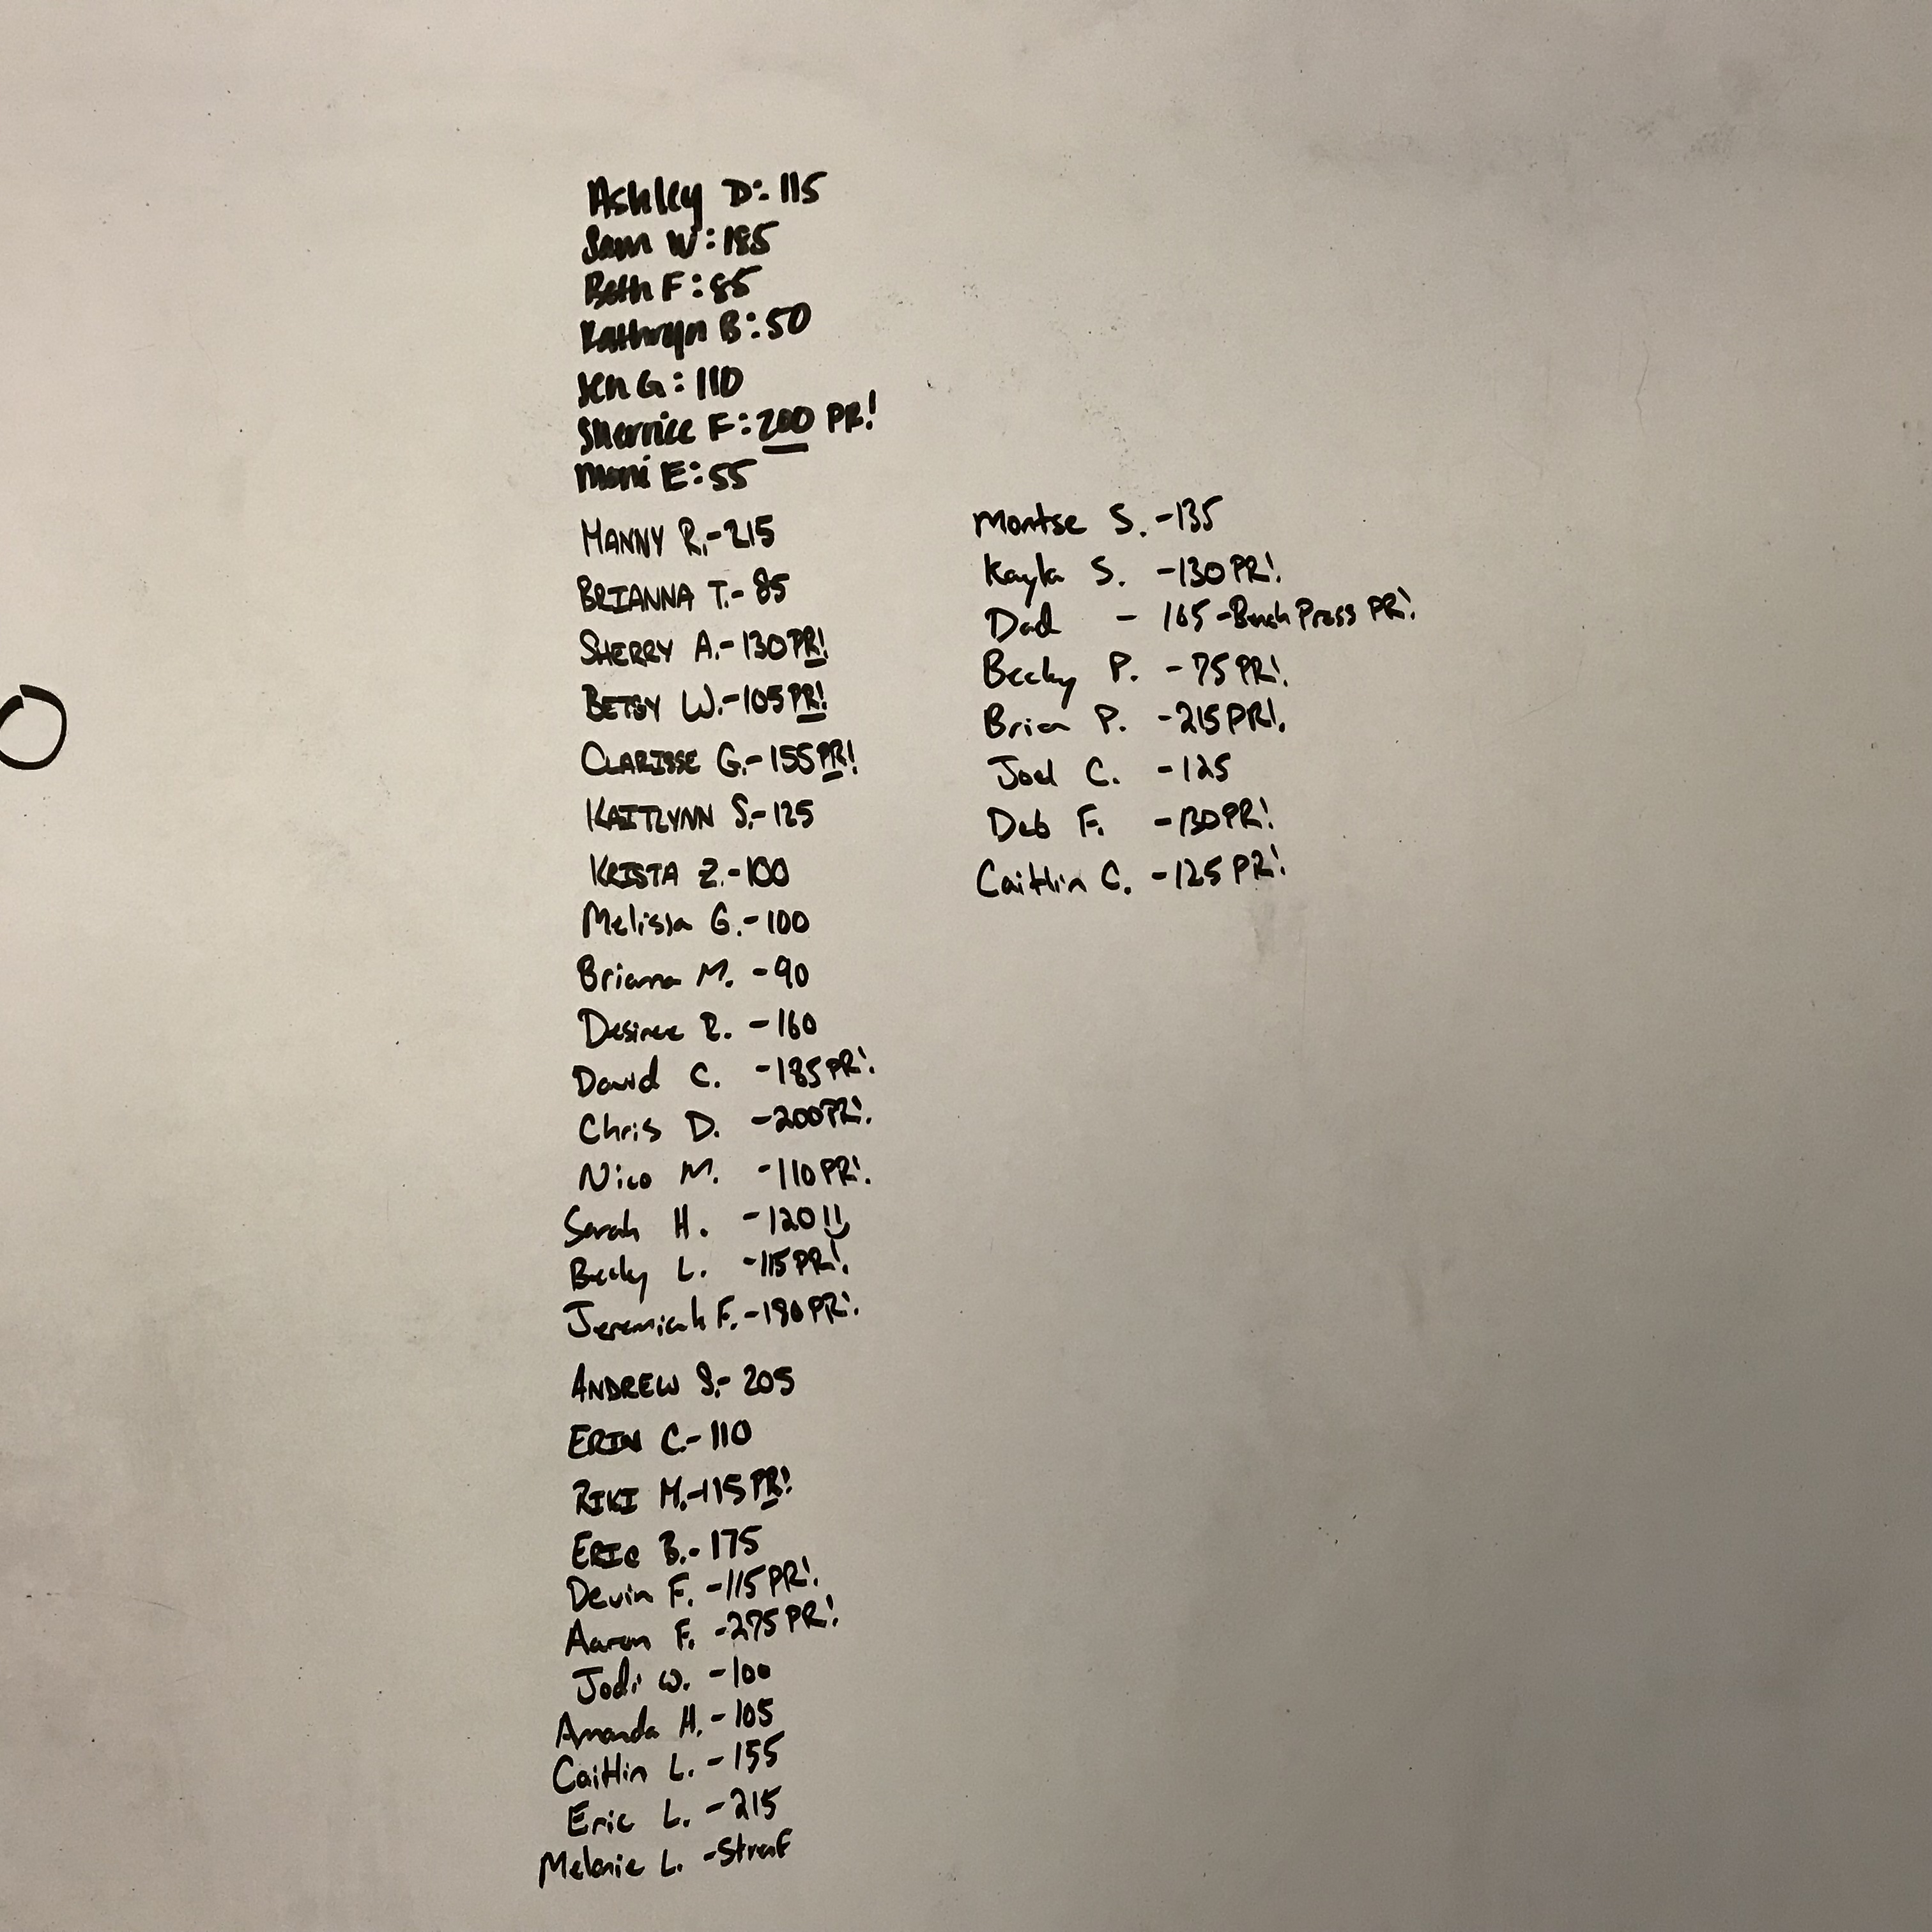 Ashley D: 115
Sam W: 185
Beth F: 85
Kathryn B: 50
Jen G: 110
Sherrice F: 200 PR!
Moni E: 55
MANNY R.-215
BRIANNA T.- 85
SHERRY A.- 130 PR!
BETSY W.-105 PR!
CLARISSE G.- 155 PR!
KAITLYNN S.- 125
KRISTA Z.-100
Melissa G.-100
Briana M. -90
Desiree R. -160
David C. -185 PR!
Chris D. -200 PR!
Nico M. -110 PR!
Sarah H. -120 !!
Becky L. -115 PR!
Jeremiah F. -180 PR!
ANDREW S.- 205
ERIN C.- 110
RIKI M.-115 PR!
ERIC B.- 175
Devin F. -115 PR!
Aaron F. -275 PR!
Jodi W. -100
Amanda H. -105
Caitlin L. -155
Eric L. -215
Melanie L. -
Montse S. -135
Kayla S. -130 PR!
Dad - 165 -Bench Press PR!
Becky P. -75 PR!
Brian P. -215 PR!
Joel C. -125
Deb F. -130 PR!
Caitlin C. -125 PR!